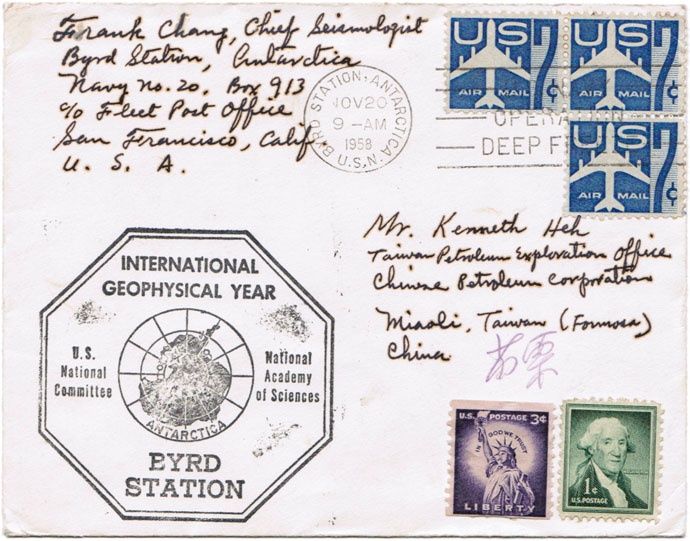 Frank Chang, Chief Seismologist
Byrd Station, Antarctica
Navy No. 20. Box 913
c/o Fleet Post Office
San Francisco, Calif.
U. S. A.
BYRD STATION, ANTARCTICA
NOV 20
9-AM
1958
U.S.N.
OPERATION
DEEP F
US 7¢
AIR MAIL
US 7¢
AIR MAIL
US 7¢
AIR MAIL
Mr. Kenneth Heh
Taiwan Petroleum Exploration Office
Chinese Petroleum Corporation
Miaoli, Taiwan (Formosa)
China
苗栗
INTERNATIONAL
GEOPHYSICAL YEAR
U.S.
National
Committee
National
Academy
of Sciences
ANTARCTICA
BYRD
STATION
U.S. POSTAGE 3¢
IN GOD WE TRUST
LIBERTY
1¢
U.S. POSTAGE